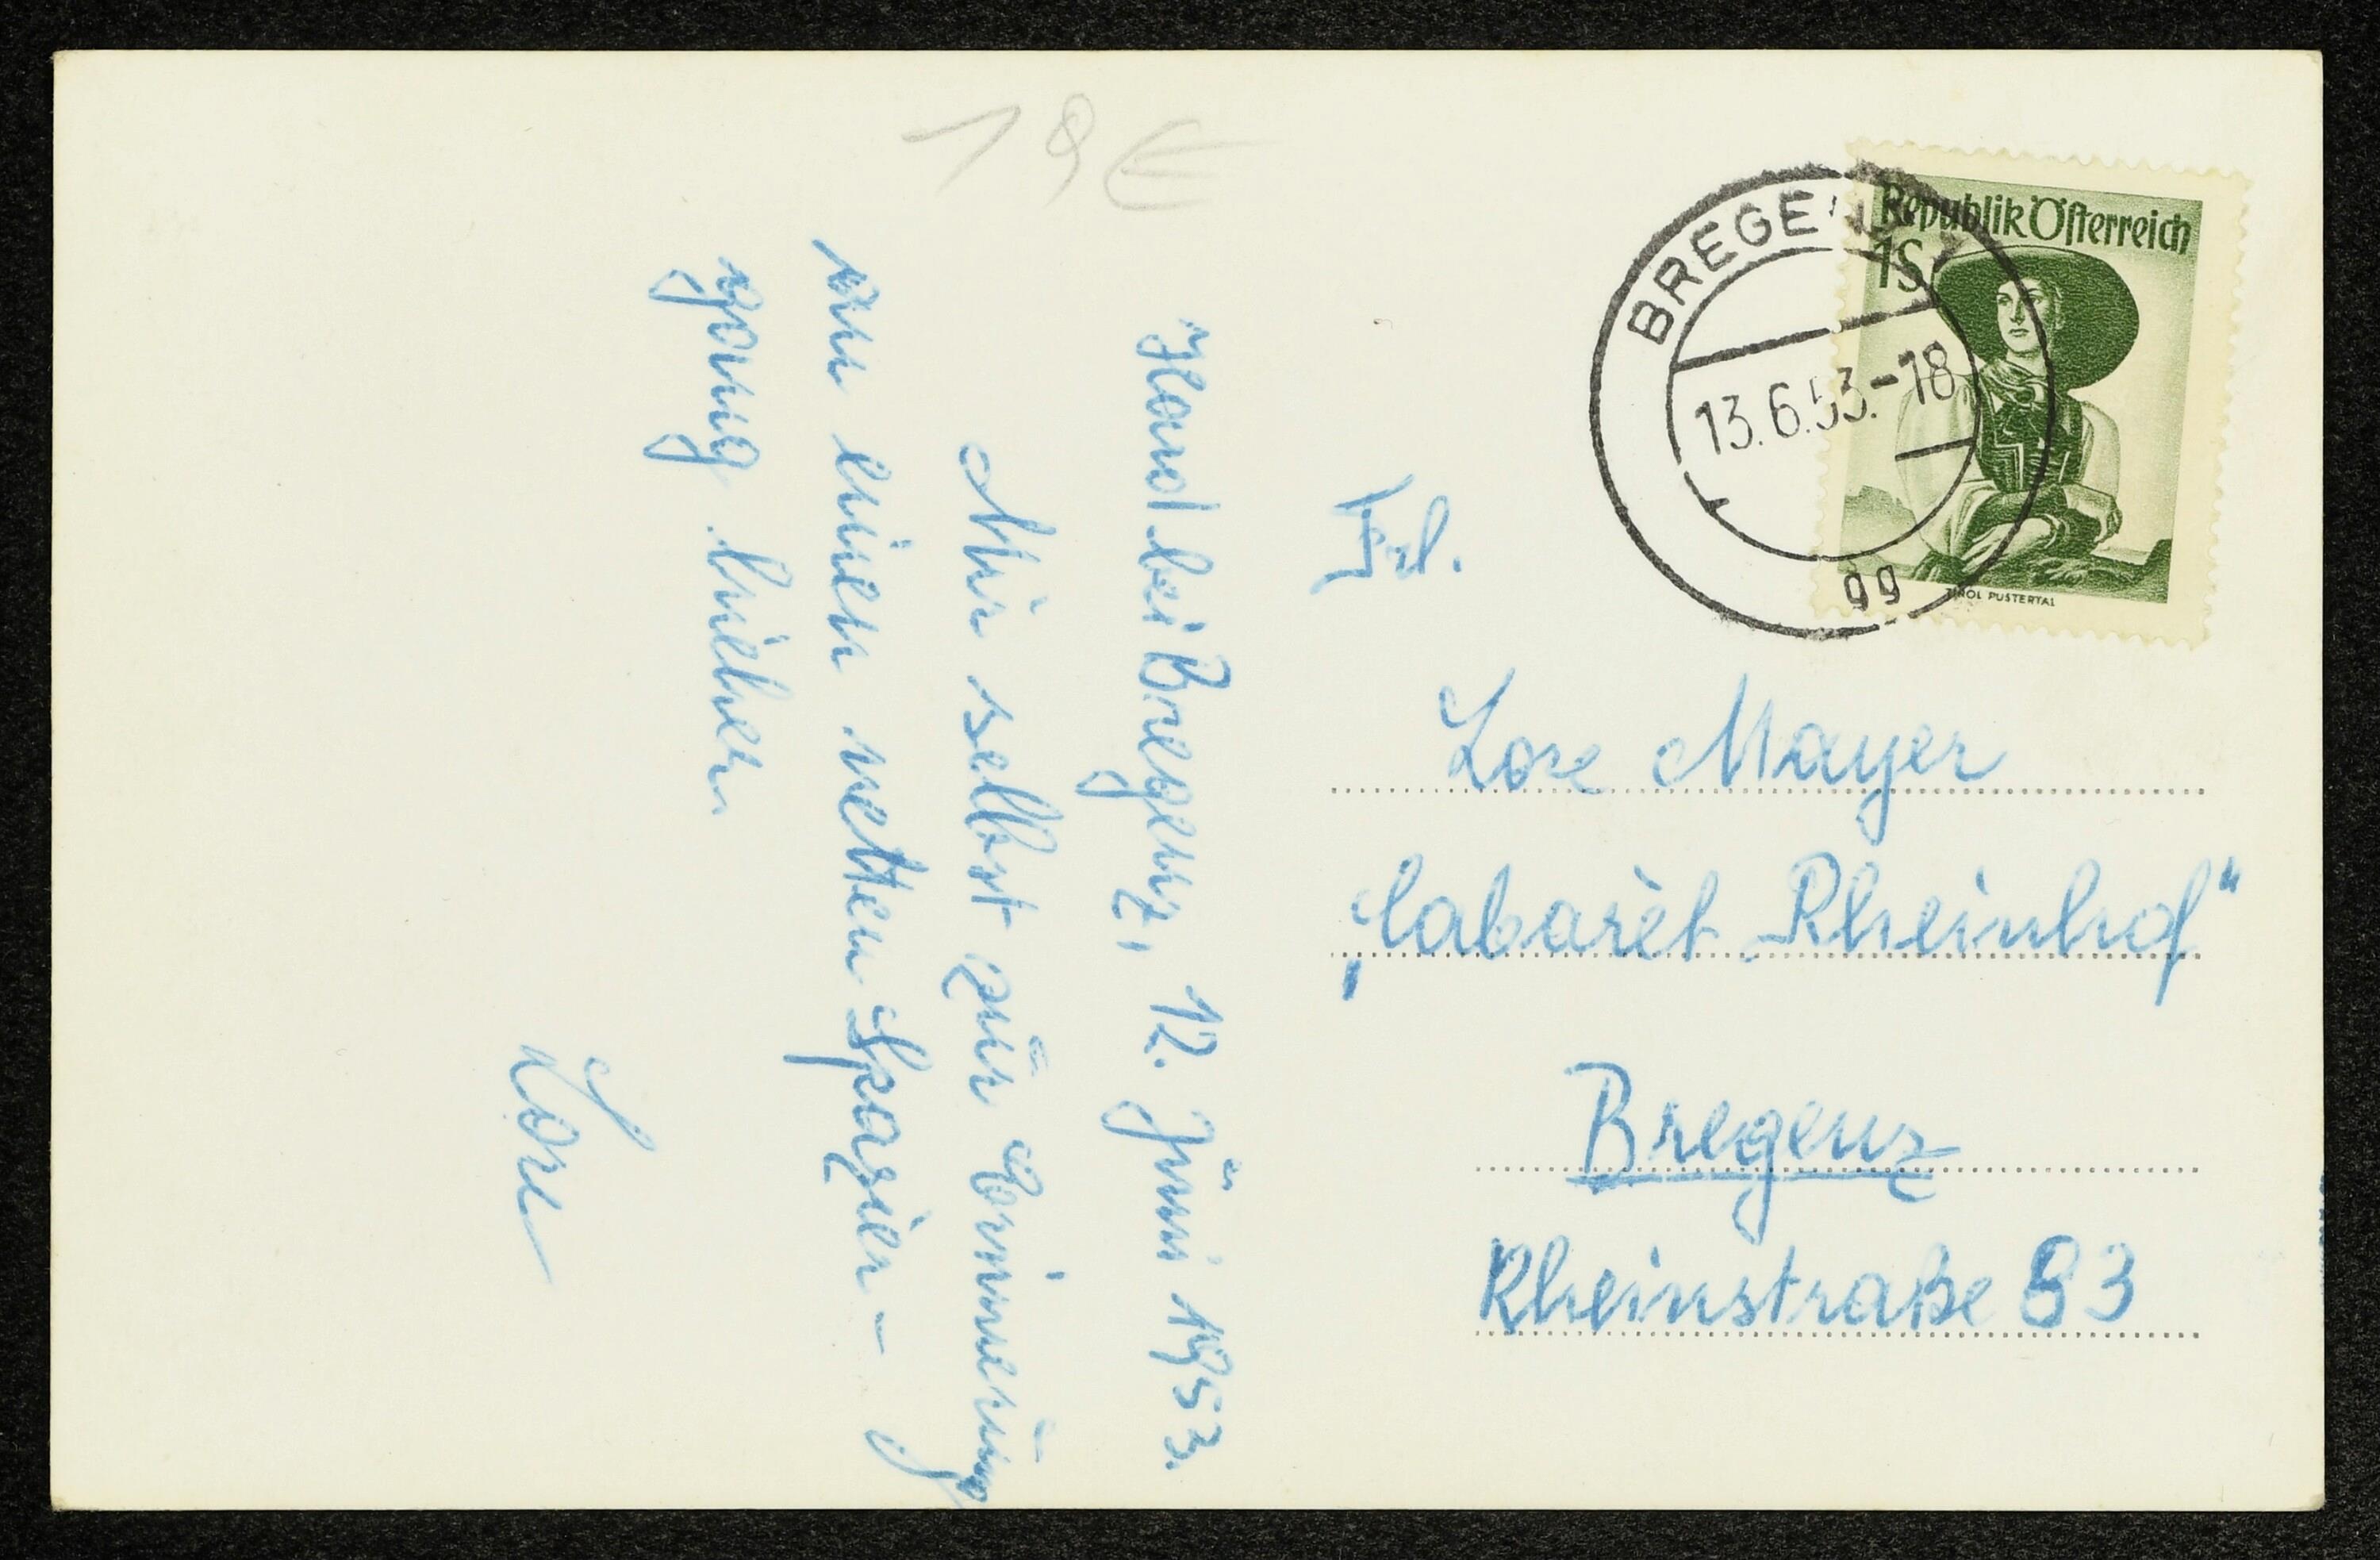 19€
Hard bei Bregenz, 12. Juni 1953.
Mir selbst zur Erinnerung
an einen netten Spazier-
gang hieher.
Lore
Frl.
Lore Mayer
„Cabarèt Rheinhof“
Bregenz
Rheinstraße 83
BREGENZ
13.6.53.-18
Republik Österreich
1S
TIROL PUSTERTAL